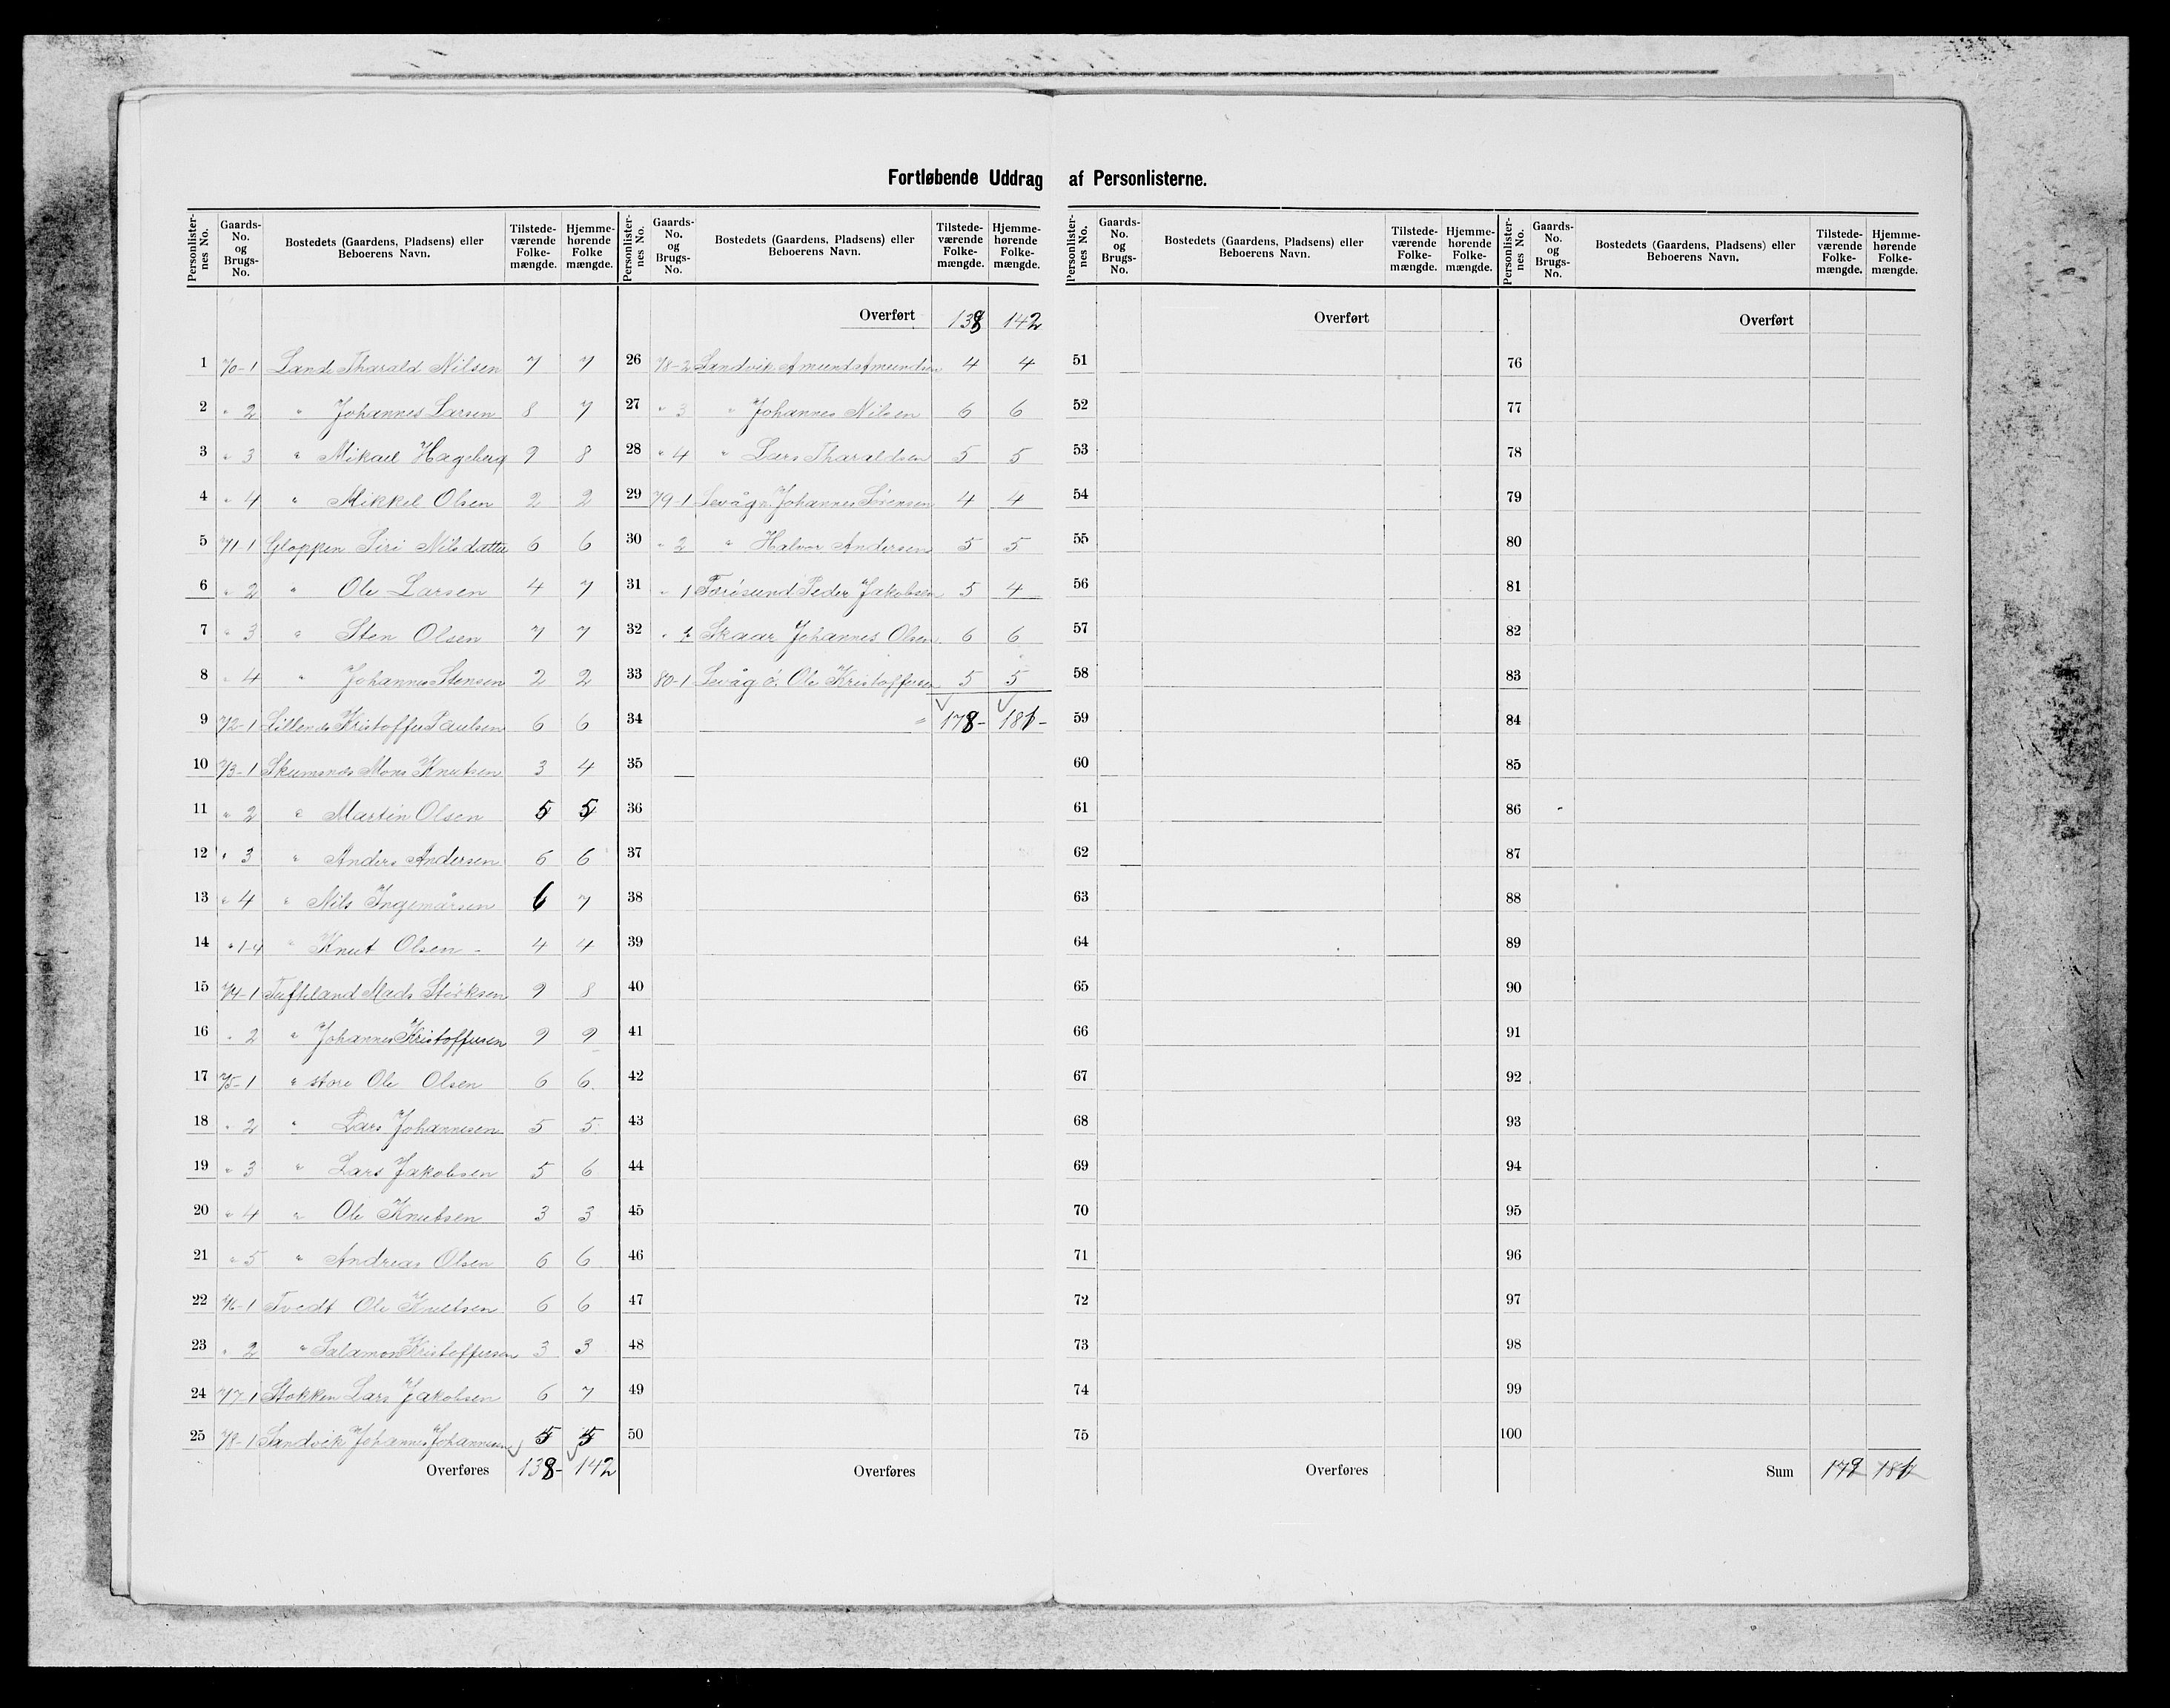 Fortløbende Uddrag af Personlisterne.
Personlister-nes No. Gaards-No. og Brugs-No. Bostedets (Gaardens, Pladsens) eller Beboerens Navn. Tilstede-værende Folke-mængde. Hjemme-hørende Folke mængde.
1 70-1 Lande Tharald Nilsen 7 7
2 " 2 " Johannes Larsen 8 7
3 " 3 " Mikael Hageberg 9 8
4 " 4 " Mikkel Olsen 2 2
5 71-1 Gloppen Siri Nilsdatter 6 6
6 " 2 " Ole Larsen 4 7
7 " 3 " Sten Olsen 7 7
8 " 4 " Johannes Stensen 2 2
9 72-1 Lillenes Kristoffer Paulsen 6 6
10 73-1 Skumsnes Mons Knutsen 3 4
11 " 2 " Martin Olsen 5 5
12 " 3 " Anders Andersen 6 6
13 " 4 " Nils Ingemårsen 6 7
14 " 1-4 " Knut Olsen - 4 4
15 74-1 Tufteland Mads Störksen 9 8
16 " 2 " Johannes Kristoffersen 9 9
17 75-1 " store Ole Olsen 6 6
18 " 2 " Lars Johannesen 5 5
19 " 3 " Lars Jakobsen 5 6
20 " 4 " Ole Knutsen 3 3
21 " 5 " Andreas Olsen 6 6
22 76-1 Tvedt Ole Knutsen 6 6
23 " 2 " Salamon Kristoffersen 3 3
24 77-1 Stokken Lars Jakobsen 6 7
25 78-1 Sandvik Johannes Johannesen 5 5
Overføres 138- 142
Personlister-nes No. Gaards-No. og Brugs-No. Bostedets (Gaardens, Pladsens) eller Beboerens Navn. Tilstede-værende Folke-mængde. Hjemme-hørende Folke-mængde.
Overført 138 142
26 78-2 Sandvik Amund Amundsen 4 4
27 " 3 " Johannes Nilsen 6 6
28 " 4 " Lars Tharaldsen 5 5
29 79-1 Levåg n. Johannes Sörensen 4 4
30 " 2 " Halvor Andersen 5 5
31 " 1 Færösund Peder Jakobsen 5 4
32 " Skaar Johannes Olsen 6 6
33 80-1 Levåg ö. Ole Kristoffersen 5 5
34 " 178- 181-
35
36
37
38
39
40
41
42
43
44
45
46
47
48
49
50
Overføres
Personlister-nes No. Gaards-No. og Brugs-No. Bostedets (Gaardens, Pladsens) eller Beboerens Navn. Tilstede-værende Folke-mængde. Hjemme-hørende Folke-mængde.
Overført
51
52
53
54
55
56
57
58
59
60
61
62
63
64
65
66
67
68
69
70
71
72
73
74
75
Overføres
Personlister-nes No. Gaards-No. og Brugs-No. Bostedets (Gaardens, Pladsens) eller Beboerens Navn. Tilstede-værende Folke-mængde. Hjemme-hørende Folke-mængde.
Overført
76
77
78
79
80
81
82
83
84
85
86
87
88
89
90
91
92
93
94
95
96
97
98
99
100
Sum 179 181